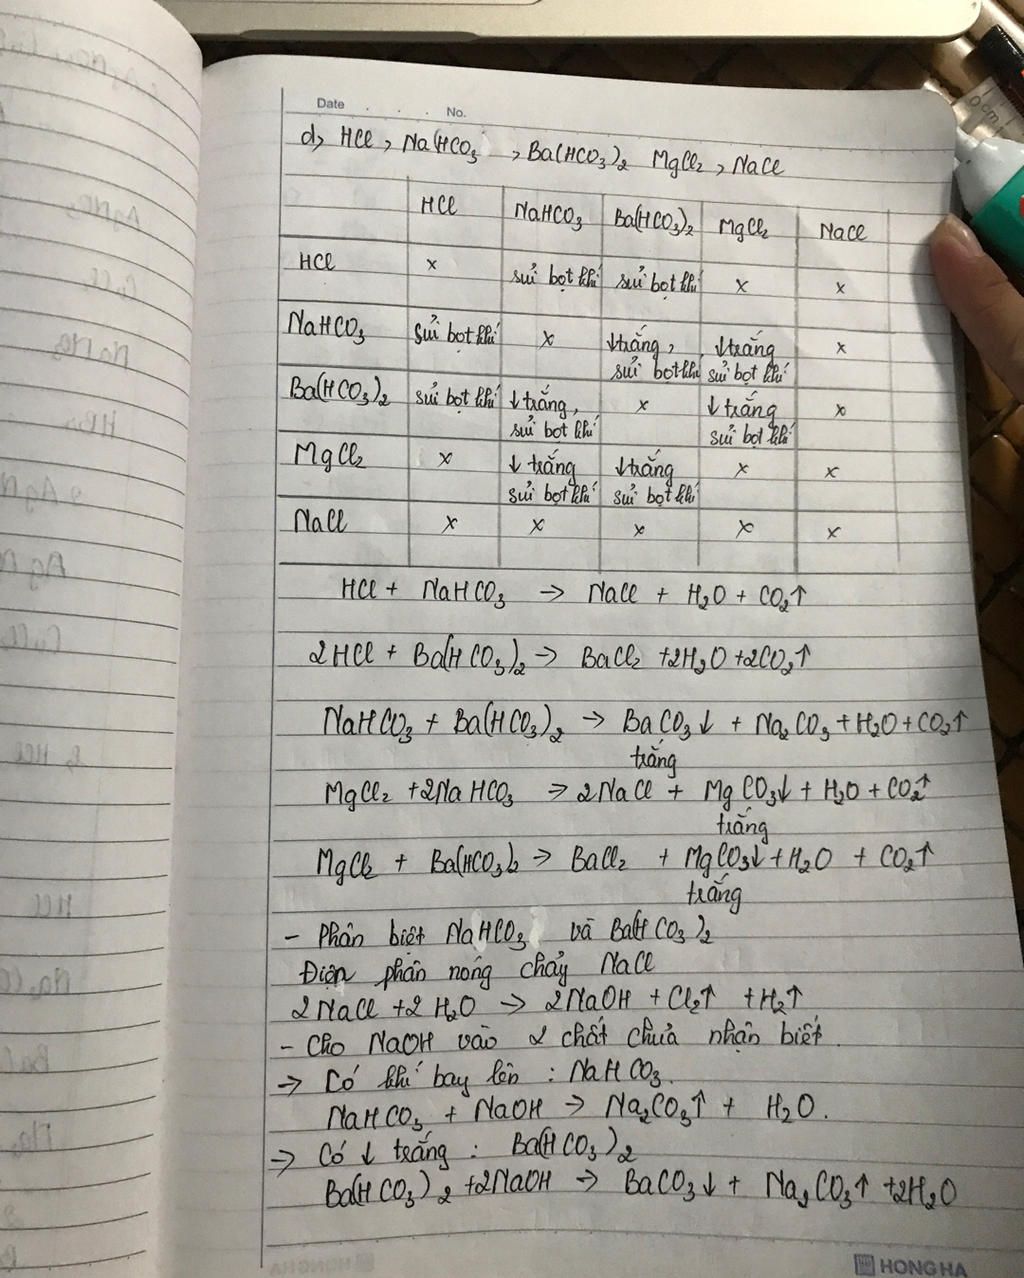 Date . . . No.
d, HCl, Na(HCO3, Ba(HCO3)2 MgCl2, NaCl
HCl NaHCO3 Ba(HCO3)2 MgCl2 NaCl
HCl x sủi bọt khí sủi bọt khí x x
NaHCO3 sủi bọt khí x ↓trắng, sủi bọt khí ↓trắng sủi bọt khí x
Ba(HCO3)2 sủi bọt khí ↓trắng, sủi bọt khí x ↓trắng sủi bọt khí x
MgCl2 x ↓trắng sủi bọt khí ↓trắng sủi bọt khí x x
NaCl x x x x x
HCl + NaHCO3 → NaCl + H2O + CO2↑
2HCl + Ba(HCO3)2 → BaCl2 +2H2O +2CO2↑
NaHCO3 + Ba(HCO3)2 → BaCO3↓ + Na2CO3 + H2O + CO2↑
trắng
MgCl2 +2NaHCO3 → 2NaCl + MgCO3↓ + H2O + CO2↑
trắng
MgCl2 + Ba(HCO3)2 → BaCl2 + MgCO3↓ + H2O + CO2↑
trắng
- Phân biệt NaHCO3 và Ba(HCO3)2
Điện phân nóng chảy NaCl
2NaCl +2H2O → 2NaOH + Cl2↑ + H2↑
- Cho NaOH vào 2 chất chưa nhận biết.
→ Có khí bay lên : NaHCO3.
NaHCO3 + NaOH → Na2CO3↑ + H2O.
→ Có ↓ trắng : Ba(HCO3)2
Ba(HCO3)2 +2NaOH → BaCO3↓ + Na2CO3↑ +2H2O
HONG HA